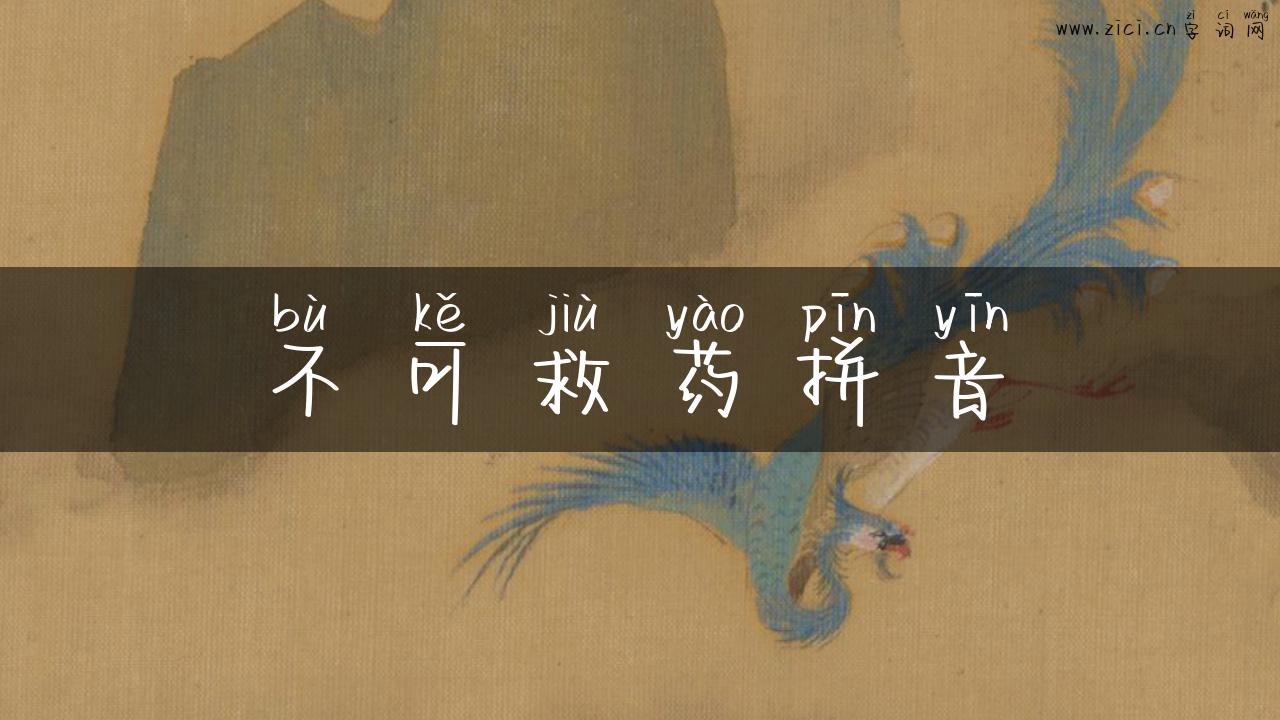 zì cí wǎng
www.zici.cn 字词网
bù kě jiù yào pīn yīn
不可救药拼音